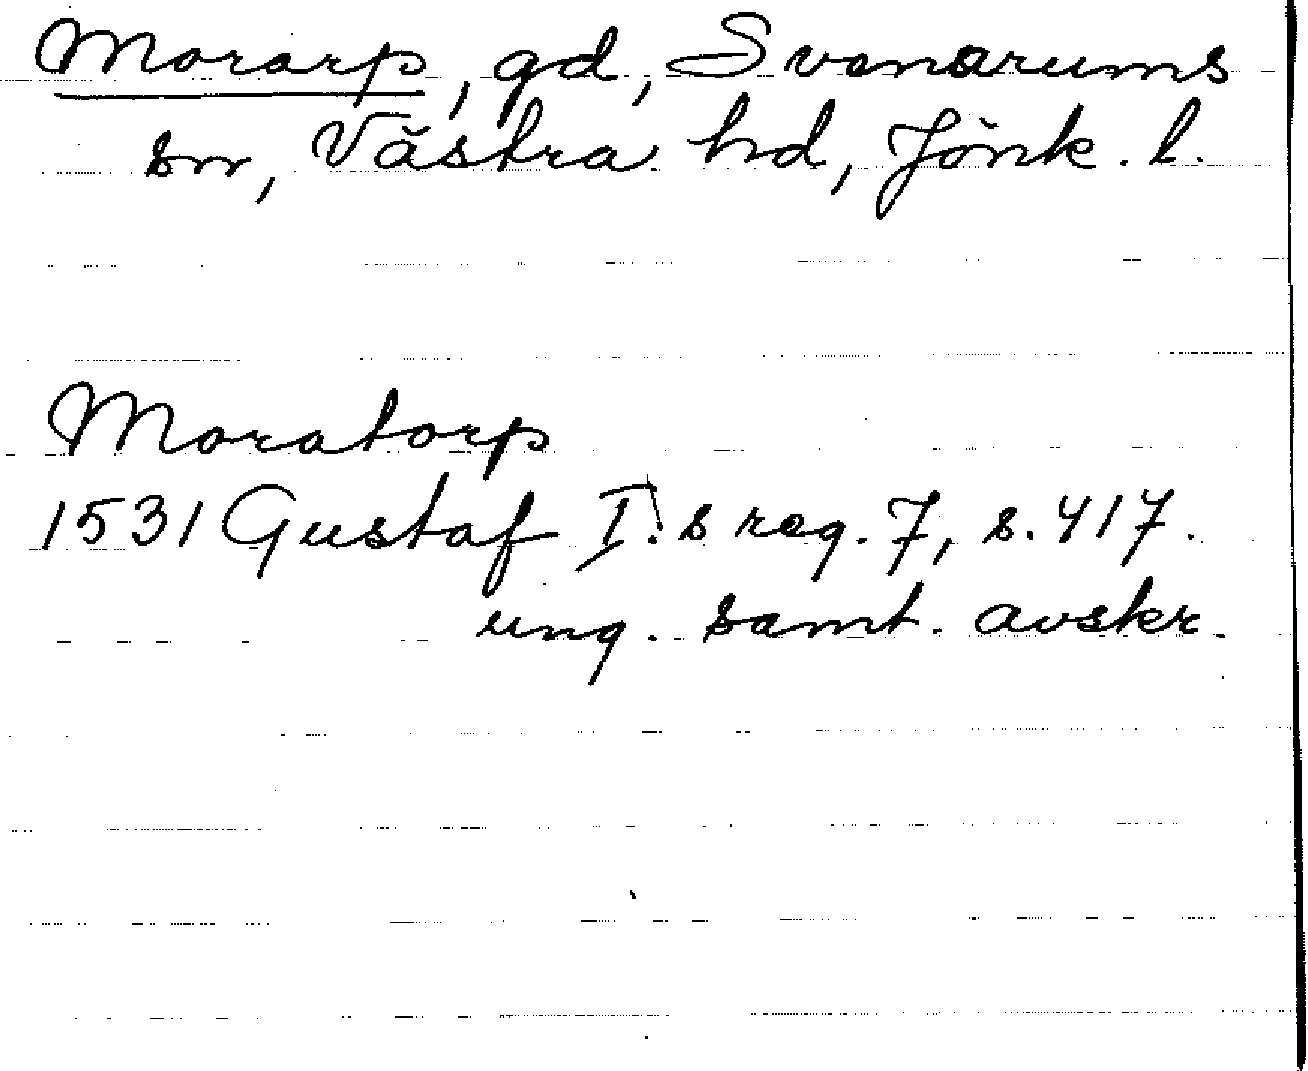 Morarp, gd, Svenarums
sn, Västra hd, Jönk. l.
Moratorp
1531 Gustaf I:s reg. 7, s. 417.
ung. samt. avskr.